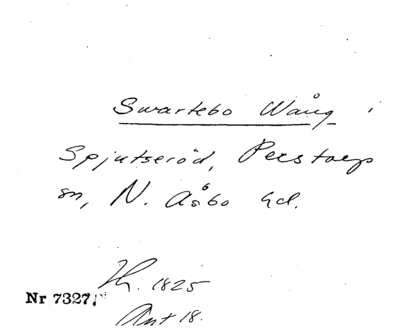 Swartebo Wång i
Spjutseröd, Perstorp
sn, N. Åsbo hd.
Th. 1825
Nr 7327
Ant 18.